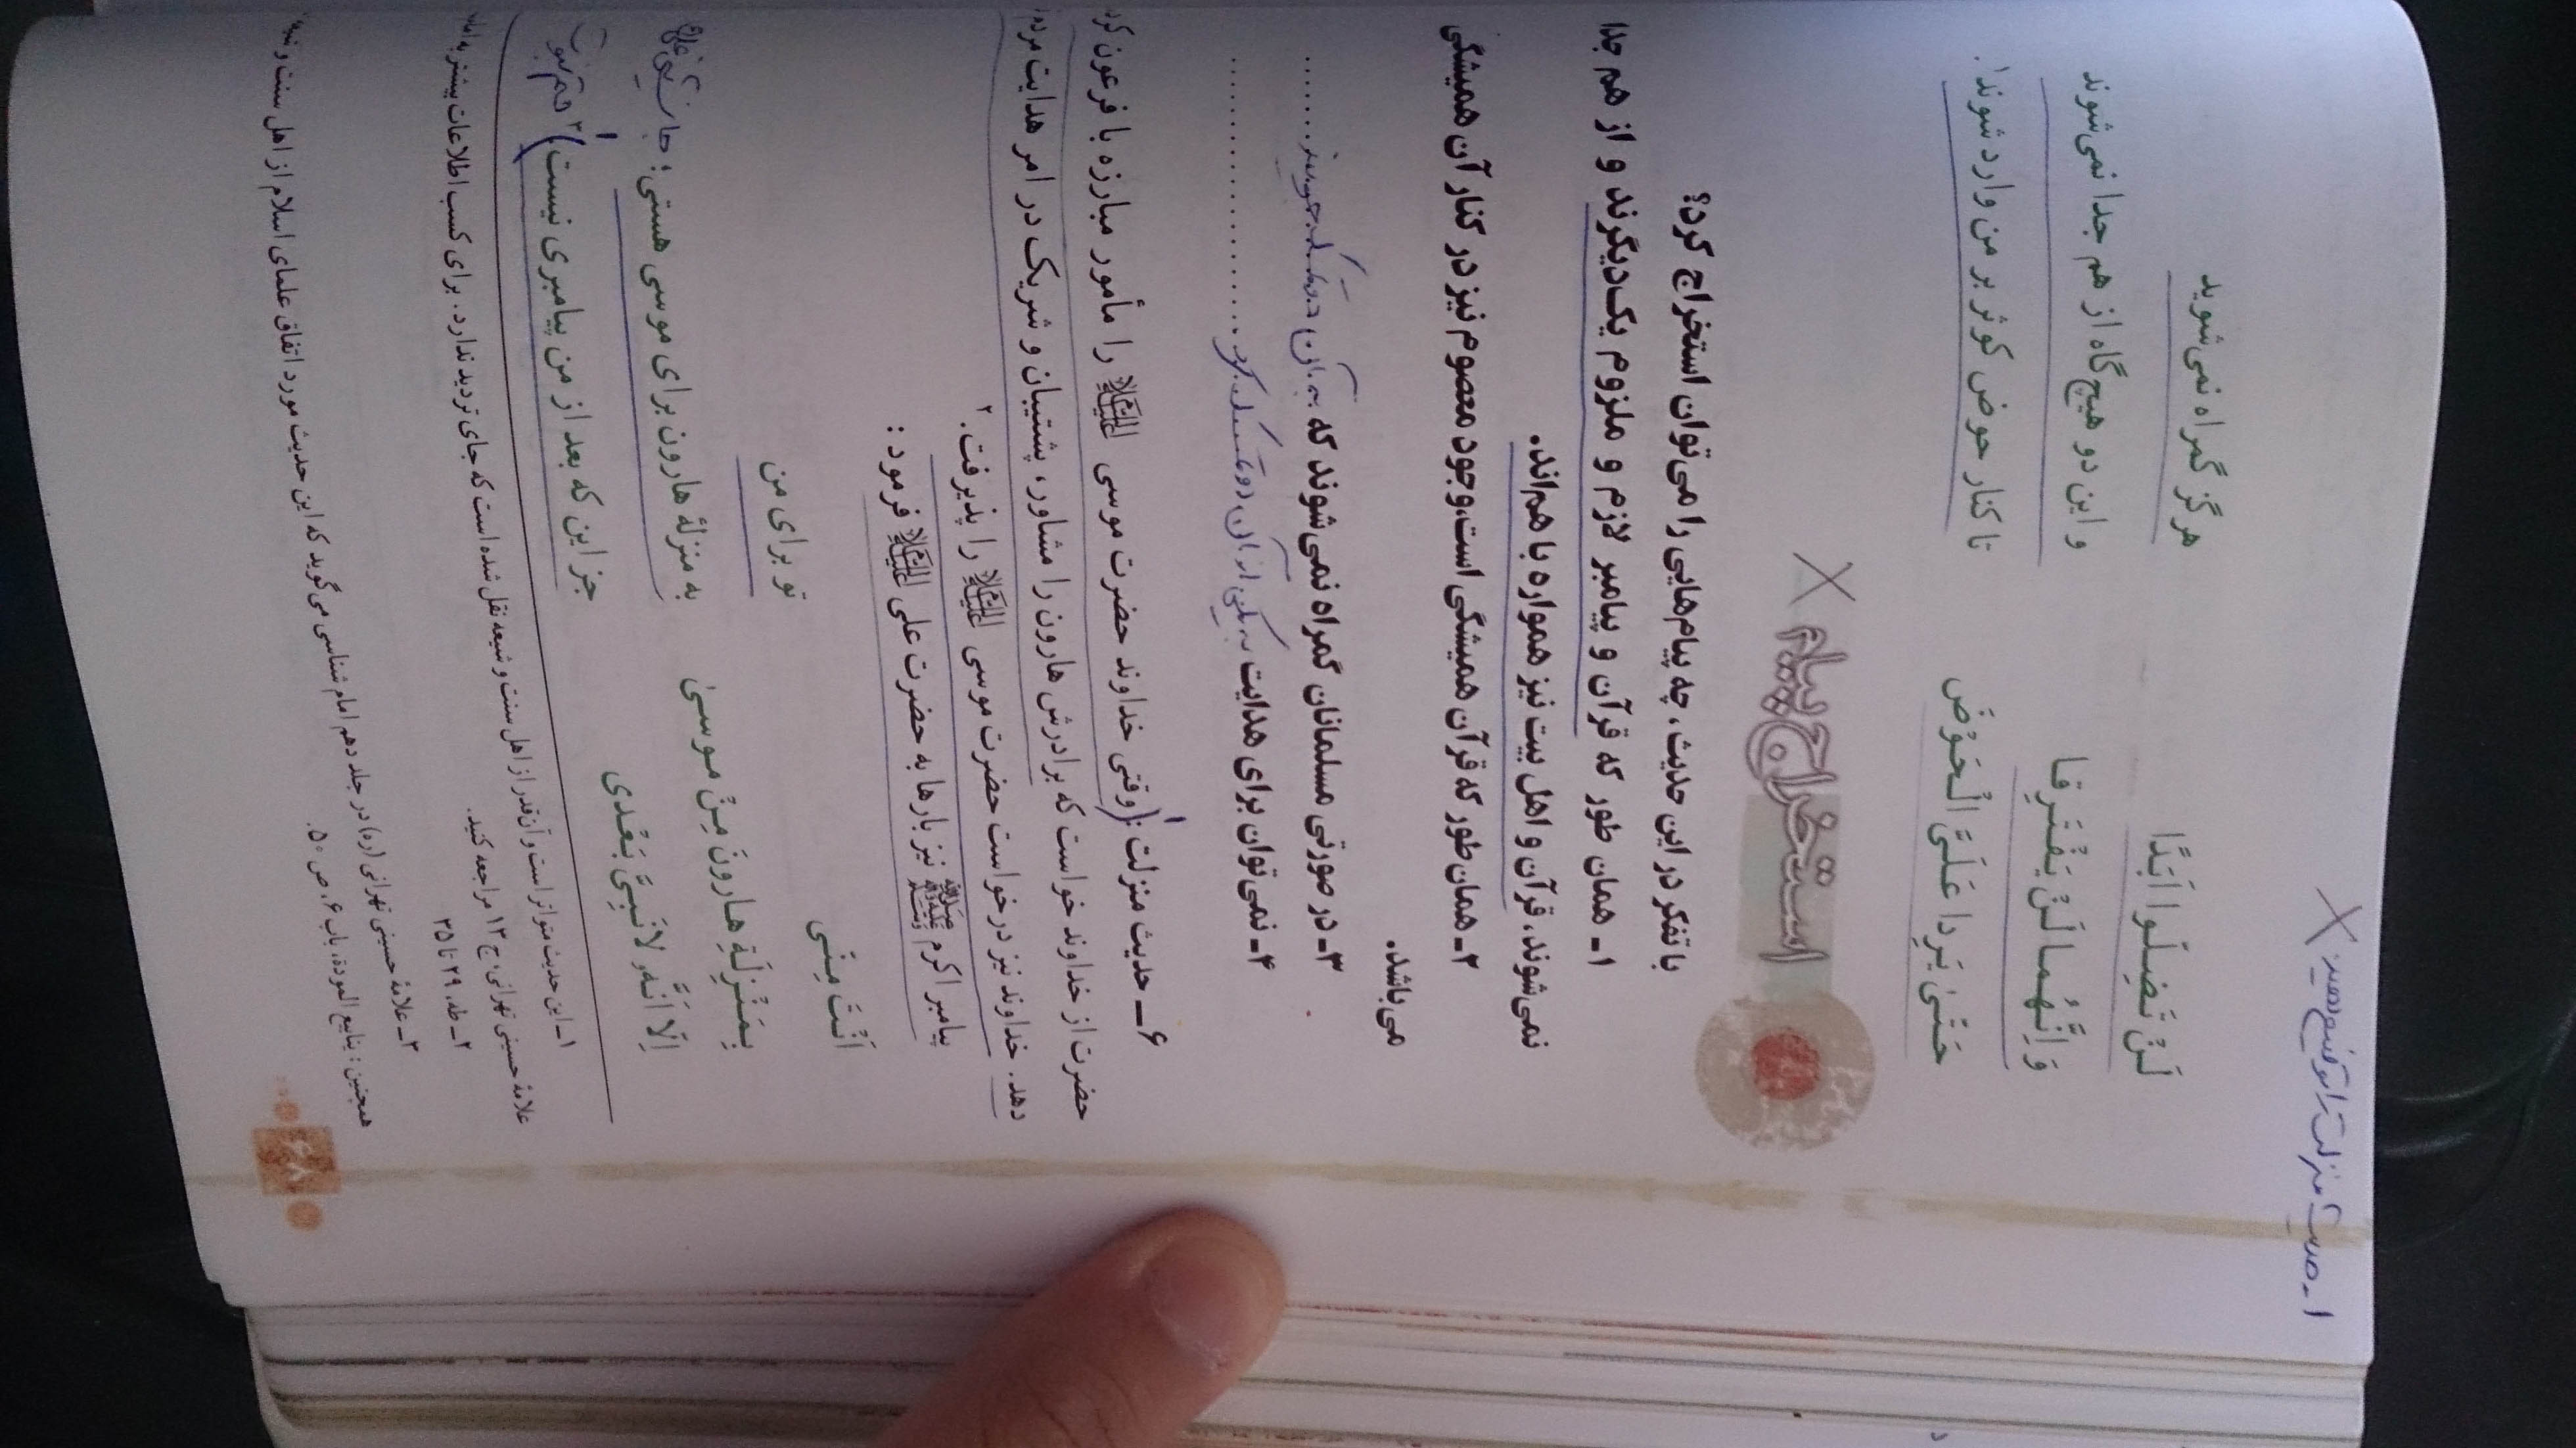 ۱ـ حدیث منزلت را توضیح دهید
لَنْ تَضِلّوا اَبَدًا هرگز گمراه نمی‌شوید
وَ اِنَّهُما لَنْ یَفْتَرِقا و این دو هیچ‌گاه از هم جدا نمی‌شوند
حَتّیٰ یَرِدا عَلَیَّ الْحَوْضَ تا کنار حوض کوثر بر من وارد شوند.۱
استخراج پیام
با تفکر در این حدیث، چه پیام‌هایی را می‌توان استخراج کرد؟
۱ـ همان طور که قرآن و پیامبر لازم و ملزوم یک‌دیگرند و از هم جدا
نمی‌شوند، قرآن و اهل بیت نیز همواره با هم‌اند.
۲ـ همان‌طور که قرآن همیشگی است، وجود معصوم نیز در کنار آن همیشگی
می‌باشد.
۳ـ در صورتی مسلمانان گمراه نمی‌شوند که به آن دو تمسک جویند .......
۴ـ نمی‌توان برای هدایت به یکی از آن دو تمسک کرد ....................
۶ ــ حدیث منزلت: (وقتی خداوند حضرت موسی علیه‌السلام را مأمور مبارزه با فرعون کرد
حضرت از خداوند خواست که برادرش هارون را مشاور، پشتیبان و شریک در امر هدایت مردم
دهد. خداوند نیز درخواست حضرت موسی علیه‌السلام را پذیرفت.۲
پیامبر اکرم صلی الله علیه وآله وسلم نیز بارها به حضرت علی علیه‌السلام فرمود:
اَنْتَ مِنّی تو برای من
بِمَنْزِلَةِ هارونَ مِنْ موسیٰ به منزلهٔ هارون برای موسی هستی؛ جانشینی علی
اِلّا اَنَّهُ لا نَبِیَّ بَعْدی جز این که بعد از من پیامبری نیست)۳ ختم نبوت
۱ـ این حدیث متواتر است و آن‌قدر از اهل سنت و شیعه نقل شده است که جای تردید ندارد. برای کسب اطلاعات بیشتر به
علامهٔ حسینی تهرانی، ج ۱۳ مراجعه کنید.
۲ـ طه، ۲۹ تا ۳۵
۳ـ علامهٔ حسینی تهرانی (ره) در جلد دهم امام شناسی می‌گوید که این حدیث مورد اتفاق علمای اسلام از اهل سنت و
همچنین: ینابیع المودة، باب ۶، ص ۵۰.
۶۸